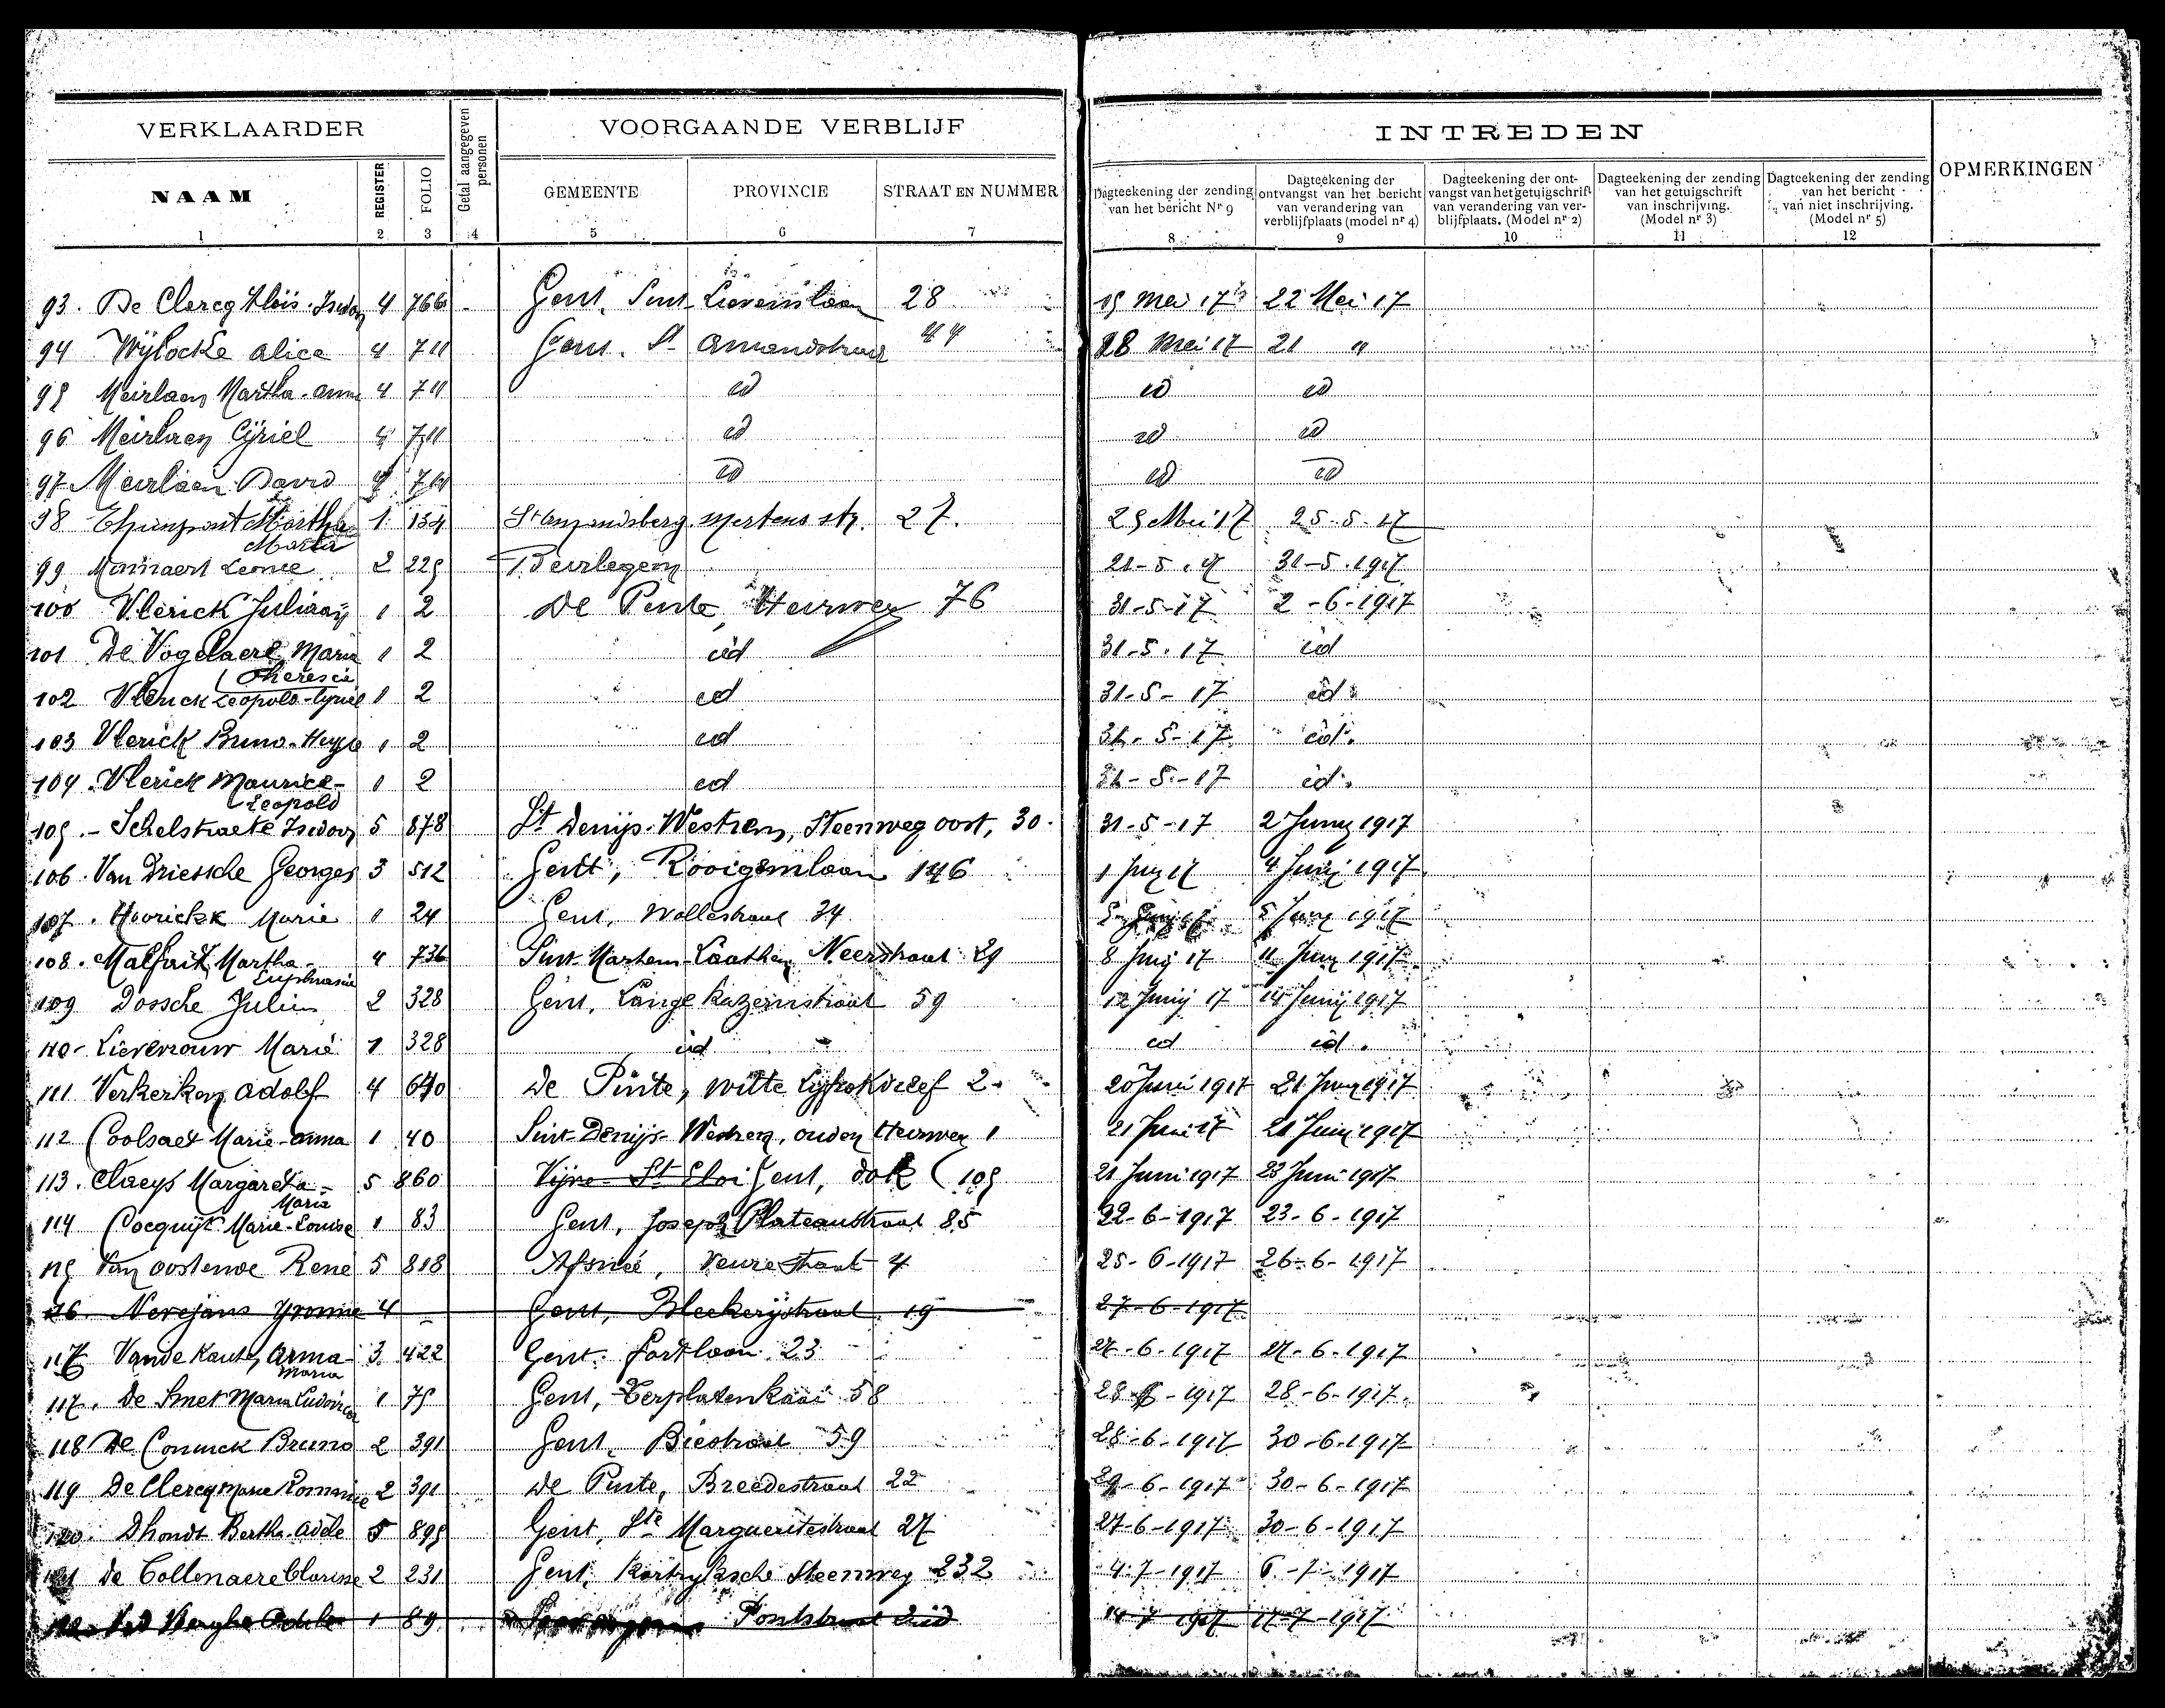 VERKLAARDER
Getal aangegeven personen
VOORGAANDE VERBLIJF
INTREDEN
OPMERKINGEN
NAAM REGISTER FOLIO GEMEENTE PROVINCIE STRAAT EN NUMMER
Dagteekening der zending van het bericht Nr 9
Dagteekening der ontvangst van het bericht van verandering van verblijfplaats (model nr 4)
Dagteekening der ontvangst van het getuigschrift van verandering van verblijfplaats. (Model nr 2)
Dagteekening der zending van het getuigschrift van inschrijving. (Model nr 3)
Dagteekening der zending van het bericht van niet inschrijving. (Model nr 5)
1 2 3 4 5 6 7 8 9 10 11 12
93. De Clercq Aloïs. Isidoor 4 766 Gent, Sint Lievenslaan 28 19 Mei 17 22 Mei 17
94 Wylocke Alice 4 711 Gent. St Amandstraat 44 18 Mei 17 21 "
95 Meirlaen Martha-Anna 4 711 id id id
96 Meirlaen Cyriel 4 711 id id id
97 Meirlaen David 4 711 id id id
98 Martha Maria 1 134 St Amandsberg Mertens str. 27. 25 Mei 17 25.5.17
99 Mannaert Leonie 2 225 Deurlegem 21-5.17 31-5.1917
100 Vlerick Juliaan 1 2 De Pinte, Heirweg 76 31-5-17 2-6-1917
101 De Vogelaere Maria Theresia 1 2 id 31-5.17 id
102 Vlerick Leopold-Cyriel 1 2 id 31-5-17 id.
103 Vlerick Bruno- 1 2 id 31-5-17 id.
104. Vlerick Maurice-Leopold 1 2 id 31-5-17 id.
105.- Schelstraete Isidoor 5 878 St Denijs-Westrem, Steenweg oost, 30. 31-5-17 2 Juny 1917
106. Van Driessche Georges 3 512 Gent, Rooigemlaan 146 1 Juny 17 4 Juny 1917
107. Hoorickx Marie 1 24 Gent, Wollestraat 34 5 Juny 17 5 Juny 1917
108. Malfait Martha-Euphrasie 4 736 Sint Martens Laathem Neerstraat 29 8 Juny 17 11 Juny 1917
109 Dossche Julien 2 328 Gent, Lange Kazernstraat 59 12 Junij 17 14 Junij 1917
110- Lievrouw Marie 1 328 id id id.
111 Verkerken Adolf 4 670 De Pinte, Witte dreef 2. 20 Juni 1917 21 Juny 1917
112 Coolsaet Marie-Anna 1 40 Sint-Denijs-Westrem, ouden Heirweg 1 21 Juni 17 21 Juny 1917
113. Claeys Margareta-Maria 5 860 Vijve St Eloi Gent, dok 105 21 Juni 1917 23 Juni 1917
114 Cocquijt Marie-Louise 1 83 Gent, Joseph Plateaustraat 85 22-6-1917 23-6-1917
115 Van Oostende Rene 5 818 Afsneé, Veurestraat 4 25-6-1917 26-6-1917
116. Nevejans Yvonne 4 Gent, Bleekerijstraat 19 27-6-1917
117 Vande Anna Maria 3 422 Gent. Parklaan 23 27-6-1917 27-6-1917
117. De Smet Maria Ludovica 1 75 Gent, Terplatenkaai 58 28-6-1917 28-6-1917
118 De Coninck Bruno 2 391 Gent, Biestraat 59 28-6-1917 30-6-1917
119 De Clercq Marie Romanie 2 391 De Pinte, Breedestraat 22 29-6-1917 30-6-1917
120. Dhondt Bertha-Adele 5 895 Gent, Ste Margueritestraat 27 27-6-1917 30-6-1917
121 De Collenaere Clarisse 2 231 Gent, Kortryksche Steenweg 232 4.7-1917 6-7-1917
1 89 Pontstraat Zuid 14 7 1917 17-7-1917